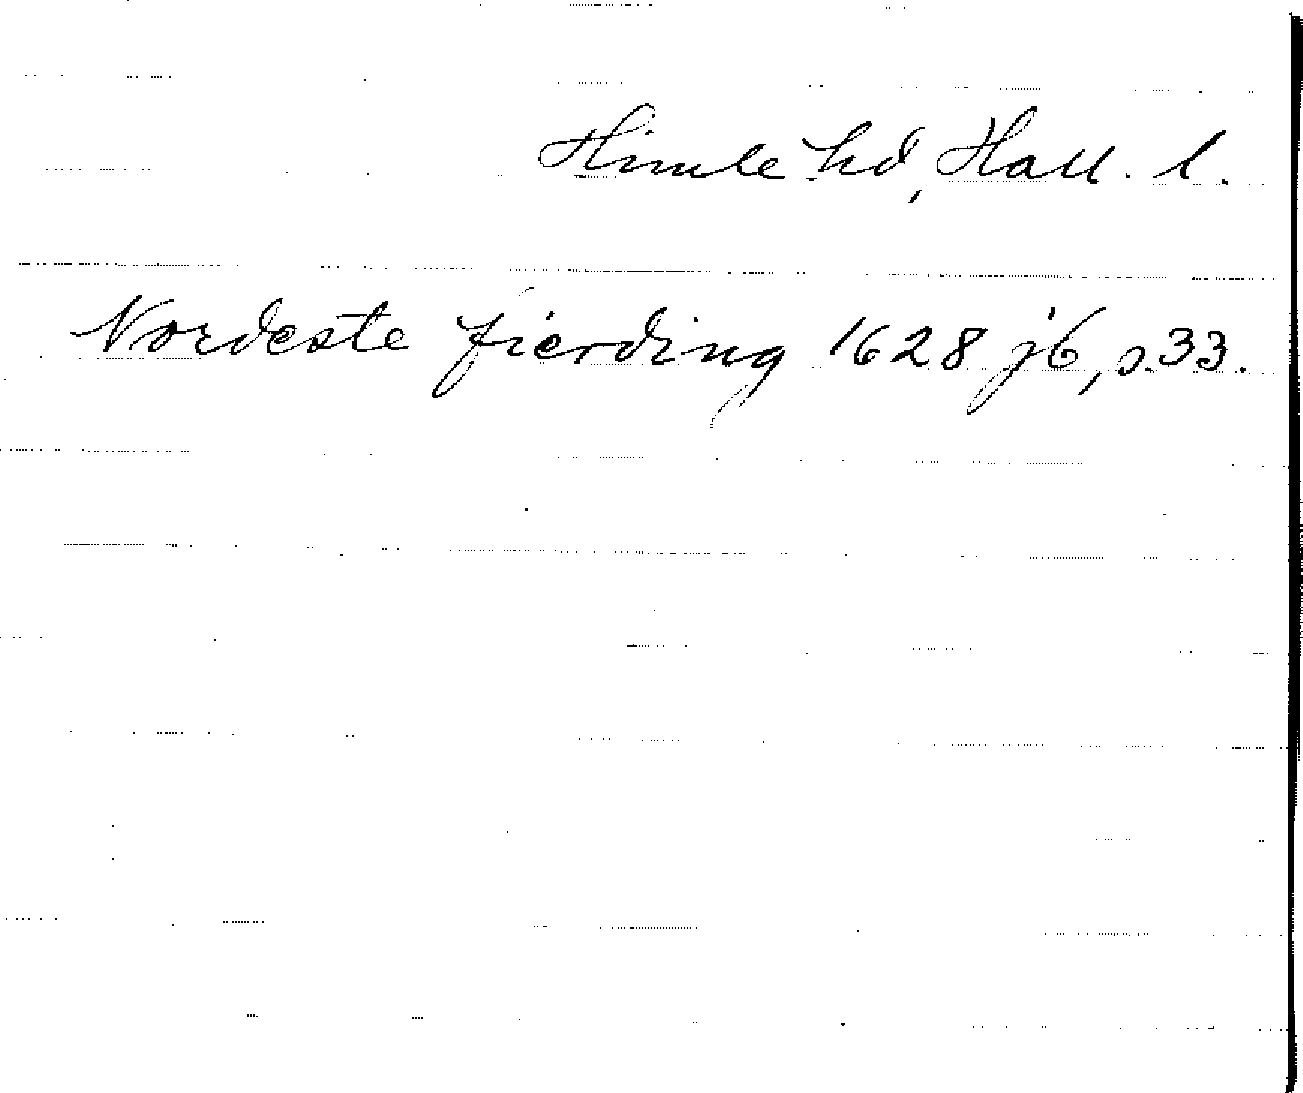 Himle hd, Hall. l.
Nordeste fierding 1628 jb, s. 33.